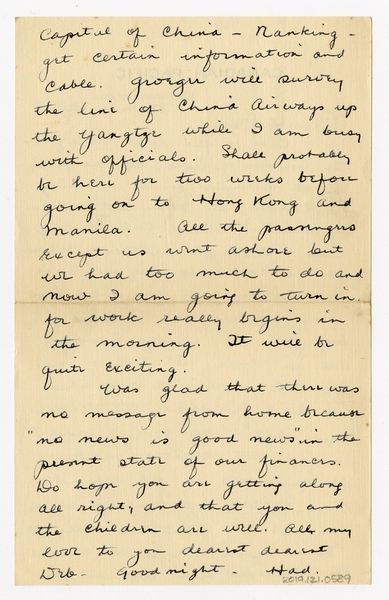 Capital of China - Nanking -
get certain information and
cable. Groeger will survey
the line of China Airways up
the Yangtze while I am busy
with officials. Shall probably
be here for two weeks before
going on to Hong Kong and
Manila. All the passengers
except us went ashore but
we had too much to do and
now I am going to turn in.
for work really begins in
the morning. It will be
quite exciting.
Was glad that there was
no message from home because
"no news is good news" in the
present state of our finances.
Do hope you are getting along
all right, and that you and
the children are well. All my
love to you dearest dearest
Deb - Goodnight - Had.
2019.121.0589